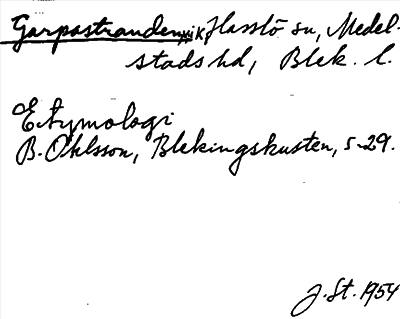 Garpastranden, ik Hasslö sn, Medel-
stads hd, Blek. l.
Etymologi
B. Ohlsson, Blekingskusten, s. 29.
J. St. 1954